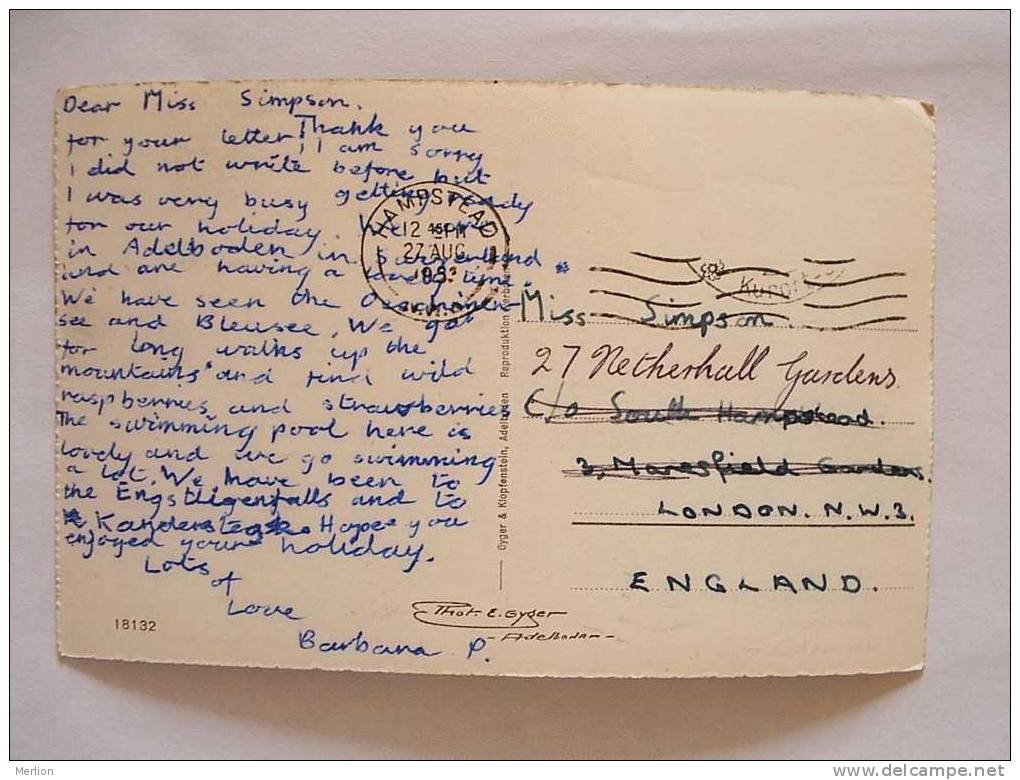 Dear Miss Simpson.
Thank you
for your letter, I am sorry
I did not write before but
I was very busy getting ready
for our holiday. We are
in Adelboden in
and are having a time.
We have seen the
see and Blausee, We go
for long walks up the
mountains and find wild
raspberries and strawberries
The swimming pool here is
lovely and we go swimming
a lot. We have been to
the Engstligenfalls and to
Hope you
enjoyed your holiday.
Lots
of
Love
Barbara P.
18132
HAMPSTEAD
12 PM
27 AUG
Gyger & Klopfenstein, Adelboden Reproduktion
Phot. E. Gyger
- Adelboden -
Miss Simpson
27 Netherhall Gardens
C/o South Hampstead.
3, Maresfield Gardens.
LONDON. N.W.3.
ENGLAND.
Merlion
www.delcampe.net